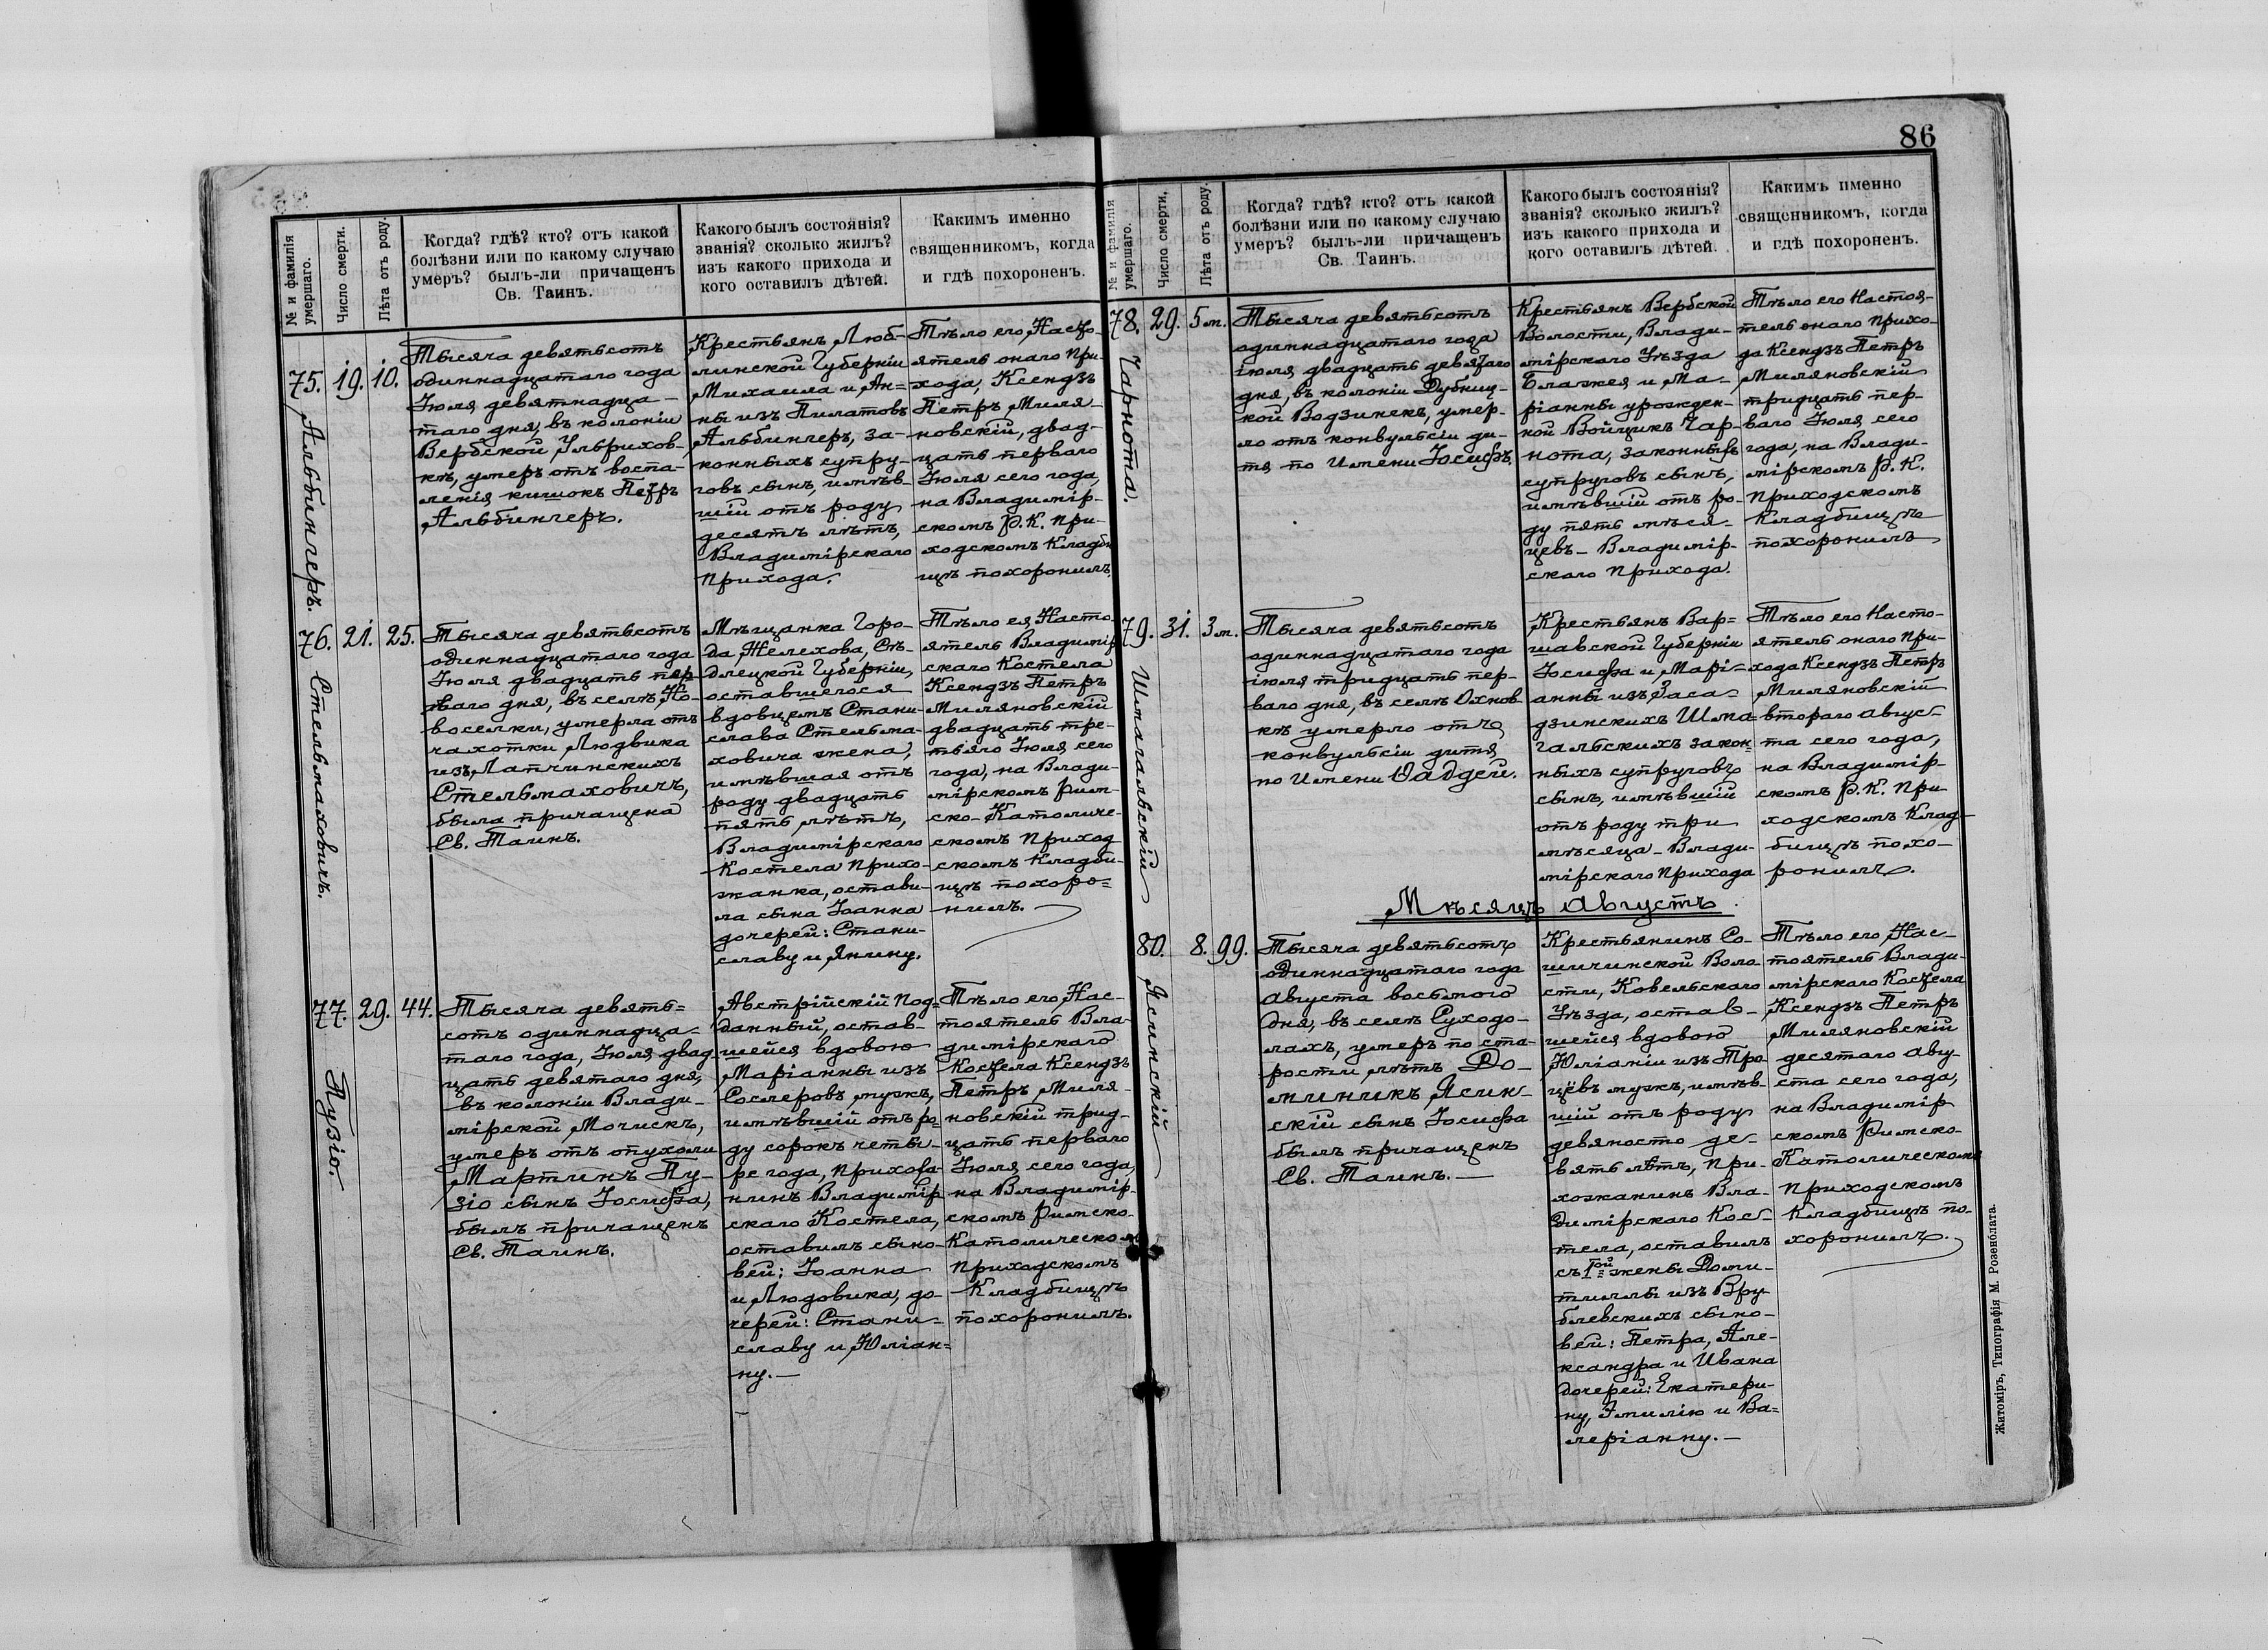 86
№ и фамилія умершаго.
Число смерти.
Лѣта отъ роду.
Когда? гдѣ? кто? отъ какой
болѣзни или по какому случаю
умеръ? былъ-ли причащенъ
Св. Таинъ.
Какого былъ состоянія?
званія? сколько жилъ?
изъ какого прихода и
кого оставилъ дѣтей.
Какимъ именно
священникомъ, когда
и гдѣ похороненъ.
75.
Альбингеръ.
19.
10.
Тысяча девятьсотъ
одиннадцатаго года
Іюля девятнадца-
таго дня, въ колоніи
Вербской Ульрихов-
кѣ, умеръ отъ воспа-
ленія кишокъ Петръ
Альбингеръ.
Крестьянъ Люб-
линской Губерніи
Михаила и Ан=
ны изъ Пилатовъ
Альбингеръ, за-
конныхъ супру-
говъ сынъ, имѣв-
шій отъ роду
десять лѣтъ,
Владимірскаго
прихода.
Тѣло его, Насто-
ятель онаго при-
хода, Ксендзъ
Петръ Миля-
новскій, двад-
цать перваго
Іюля сего года,
на Владимір-
скомъ Р.К. при-
ходскомъ кладби
щѣ похоронилъ.
76.
Стельмаховичъ.
21.
25.
Тысяча девятьсотъ
одиннадцатаго года
Іюля двадцать пер
ваго дня, въ селѣ Но-
воселки, умерла отъ
чахотки Людвика
изъ Лапчинскихъ
Стельмаховичъ,
была причащена
Св. Таинъ.
Мѣщанка Горо-
да Желехова, Сѣ-
длецкой Губерніи,
оставшегося
вдовцемъ Стани-
слава Стельма-
ховича жена,
имѣвшая отъ
роду двадцать
пять лѣтъ,
Владимірскаго
Костела прихо-
жанка, остави-
ла сына Іоанна
дочерей: Стани-
славу и Янину.
Тѣло ея, Насто
ятель Владимір
скаго Костела
Ксендзъ Петръ
Миляновскій
двадцать тре-
тьяго Іюля сего
года, на Влади-
мірскомъ Рим-
ско-Католиче-
скомъ приход
скомъ кладби-
щѣ похоро=
нилъ.
77.
Пузіо.
29.
44.
Тысяча девять=
сотъ одиннадца-
таго года, Іюля двад
цать девятаго дня,
въ колоніи Влади-
мірской Мочискъ,
умеръ отъ опухоли
Мартинъ Пу-
зіо сынъ Іосифа,
былъ причащенъ
Св. Таинъ.
Австрійскій под-
данный, остав-
шейся вдовою
Маріанны изъ
Сослеровъ мужъ,
имѣвшій отъ ро
ду сорокъ четы-
ре года, прихожа-
нинъ Владимір
скаго Костела,
оставилъ сыно-
вей: Іоанна
и Людовика, до-
черей: Стани-
славу и Юліан=
ну.—
Тѣло его, Нас-
тоятель Вла-
димірскаго
Костела Ксендзъ
Петръ Миля-
новскій трид-
цать перваго
Іюля сего года,
на Владимір-
скомъ Римско-
Католическомъ
приходскомъ
Кладбищѣ
похоронилъ.
№ и фамилія умершаго.
Число смерти.
Лѣта отъ роду.
Когда? гдѣ? кто? отъ какой
болѣзни или по какому случаю
умеръ? былъ-ли причащенъ
Св. Таинъ.
Какого былъ состоянія?
званія? сколько жилъ?
изъ какого прихода и
кого оставилъ дѣтей.
Какимъ именно
священникомъ, когда
и гдѣ похороненъ.
78.
Чарнота.
29.
5 м.
Тысяча девятьсотъ
одиннадцатаго года
іюля двадцать девятаго
дня, въ колоніи Дубниц-
кой Водзинекъ, умер-
ло отъ конвульсіи ди-
тя по имени Іосифъ.
Крестьянъ Вербской
Волости, Влади-
мірскаго Уѣзда
Блажея и Ма-
ріанны урожден-
ной Войцикъ Чар-
нота, законныхъ
супруговъ сынъ,
имѣвшій отъ ро-
ду пять мѣся-
цевъ - Владимір-
скаго прихода.
Тѣло его Настоя-
тель онаго прихо-
да Ксендзъ Петръ
Миляновскій
тридцать пер-
ваго Іюля сего
года, на Влади-
мірскомъ Р.К.
приходскомъ
кладбищѣ
похоронилъ
79.
Шмагальскій
31.
3 м.
Тысяча девятьсотъ
одиннадцатаго года
іюля тридцать пер-
ваго дня, въ селѣ Охнов
кѣ умерло отъ
конвульсіи дитя,
по имени Ѳаддей.
Крестьянъ Вар=
шавской Губерніи
Іосифа и Марі-
анны изъ Заса-
дзинскихъ Шма-
гальскихъ закон-
ныхъ супруговъ
сынъ, имѣвшій
отъ роду три
мѣсяца - Влади-
мірскаго прихода
Тѣло его Насто-
ятель онаго при-
хода Ксендзъ Петръ
Миляновскій
второго авгус-
та сего года,
на Владимір-
скомъ Р.К. при
ходскомъ клад-
бищѣ похо-
ронилъ.
Мѣсяцъ Августъ.
80.
Ясинскій
8.
99.
Тысяча девятьсотъ
одиннадцатаго года
Августа восьмого
дня, въ селѣ Суходо-
лахъ, умеръ по ста-
рости лѣтъ До-
миникъ Ясин-
скій сынъ Іосифа
былъ причащенъ
Св. Таинъ.—
Крестьянинъ Со-
шичинской Воло-
сти, Ковельскаго
Уѣзда, остав-
шейся вдовою
Юліаніи изъ Тро-
цёвъ мужъ, имѣв-
шій отъ роду
девяносто де-
вять лѣтъ, при-
хожанинъ Вла-
димірскаго Кос-
тела, оставилъ
съ 1ой жены Доми-
тиллы изъ Вру-
блевскихъ сыно-
вей: Петра, Але-
ксандра и Ивана
дочерей: Екатери-
ну, Эмилію и Ва=
леріанну.—
Тѣло его, Нас-
тоятель Влади-
мірскаго Костела
Ксендзъ Петръ
Миляновскій
десятаго авгу-
ста сего года,
на Владимір
скомъ Римско-
Католическомъ
приходскомъ
кладбищѣ по-
хоронилъ.
Житоміръ, Типографія М. Розенблата.